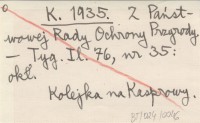 K. 1935. Z Państ-
wowej Rady Ochrony Przyrody
— Tyg. Il. 76, nr 35:
okł.
Kolejka na Kasprowy.